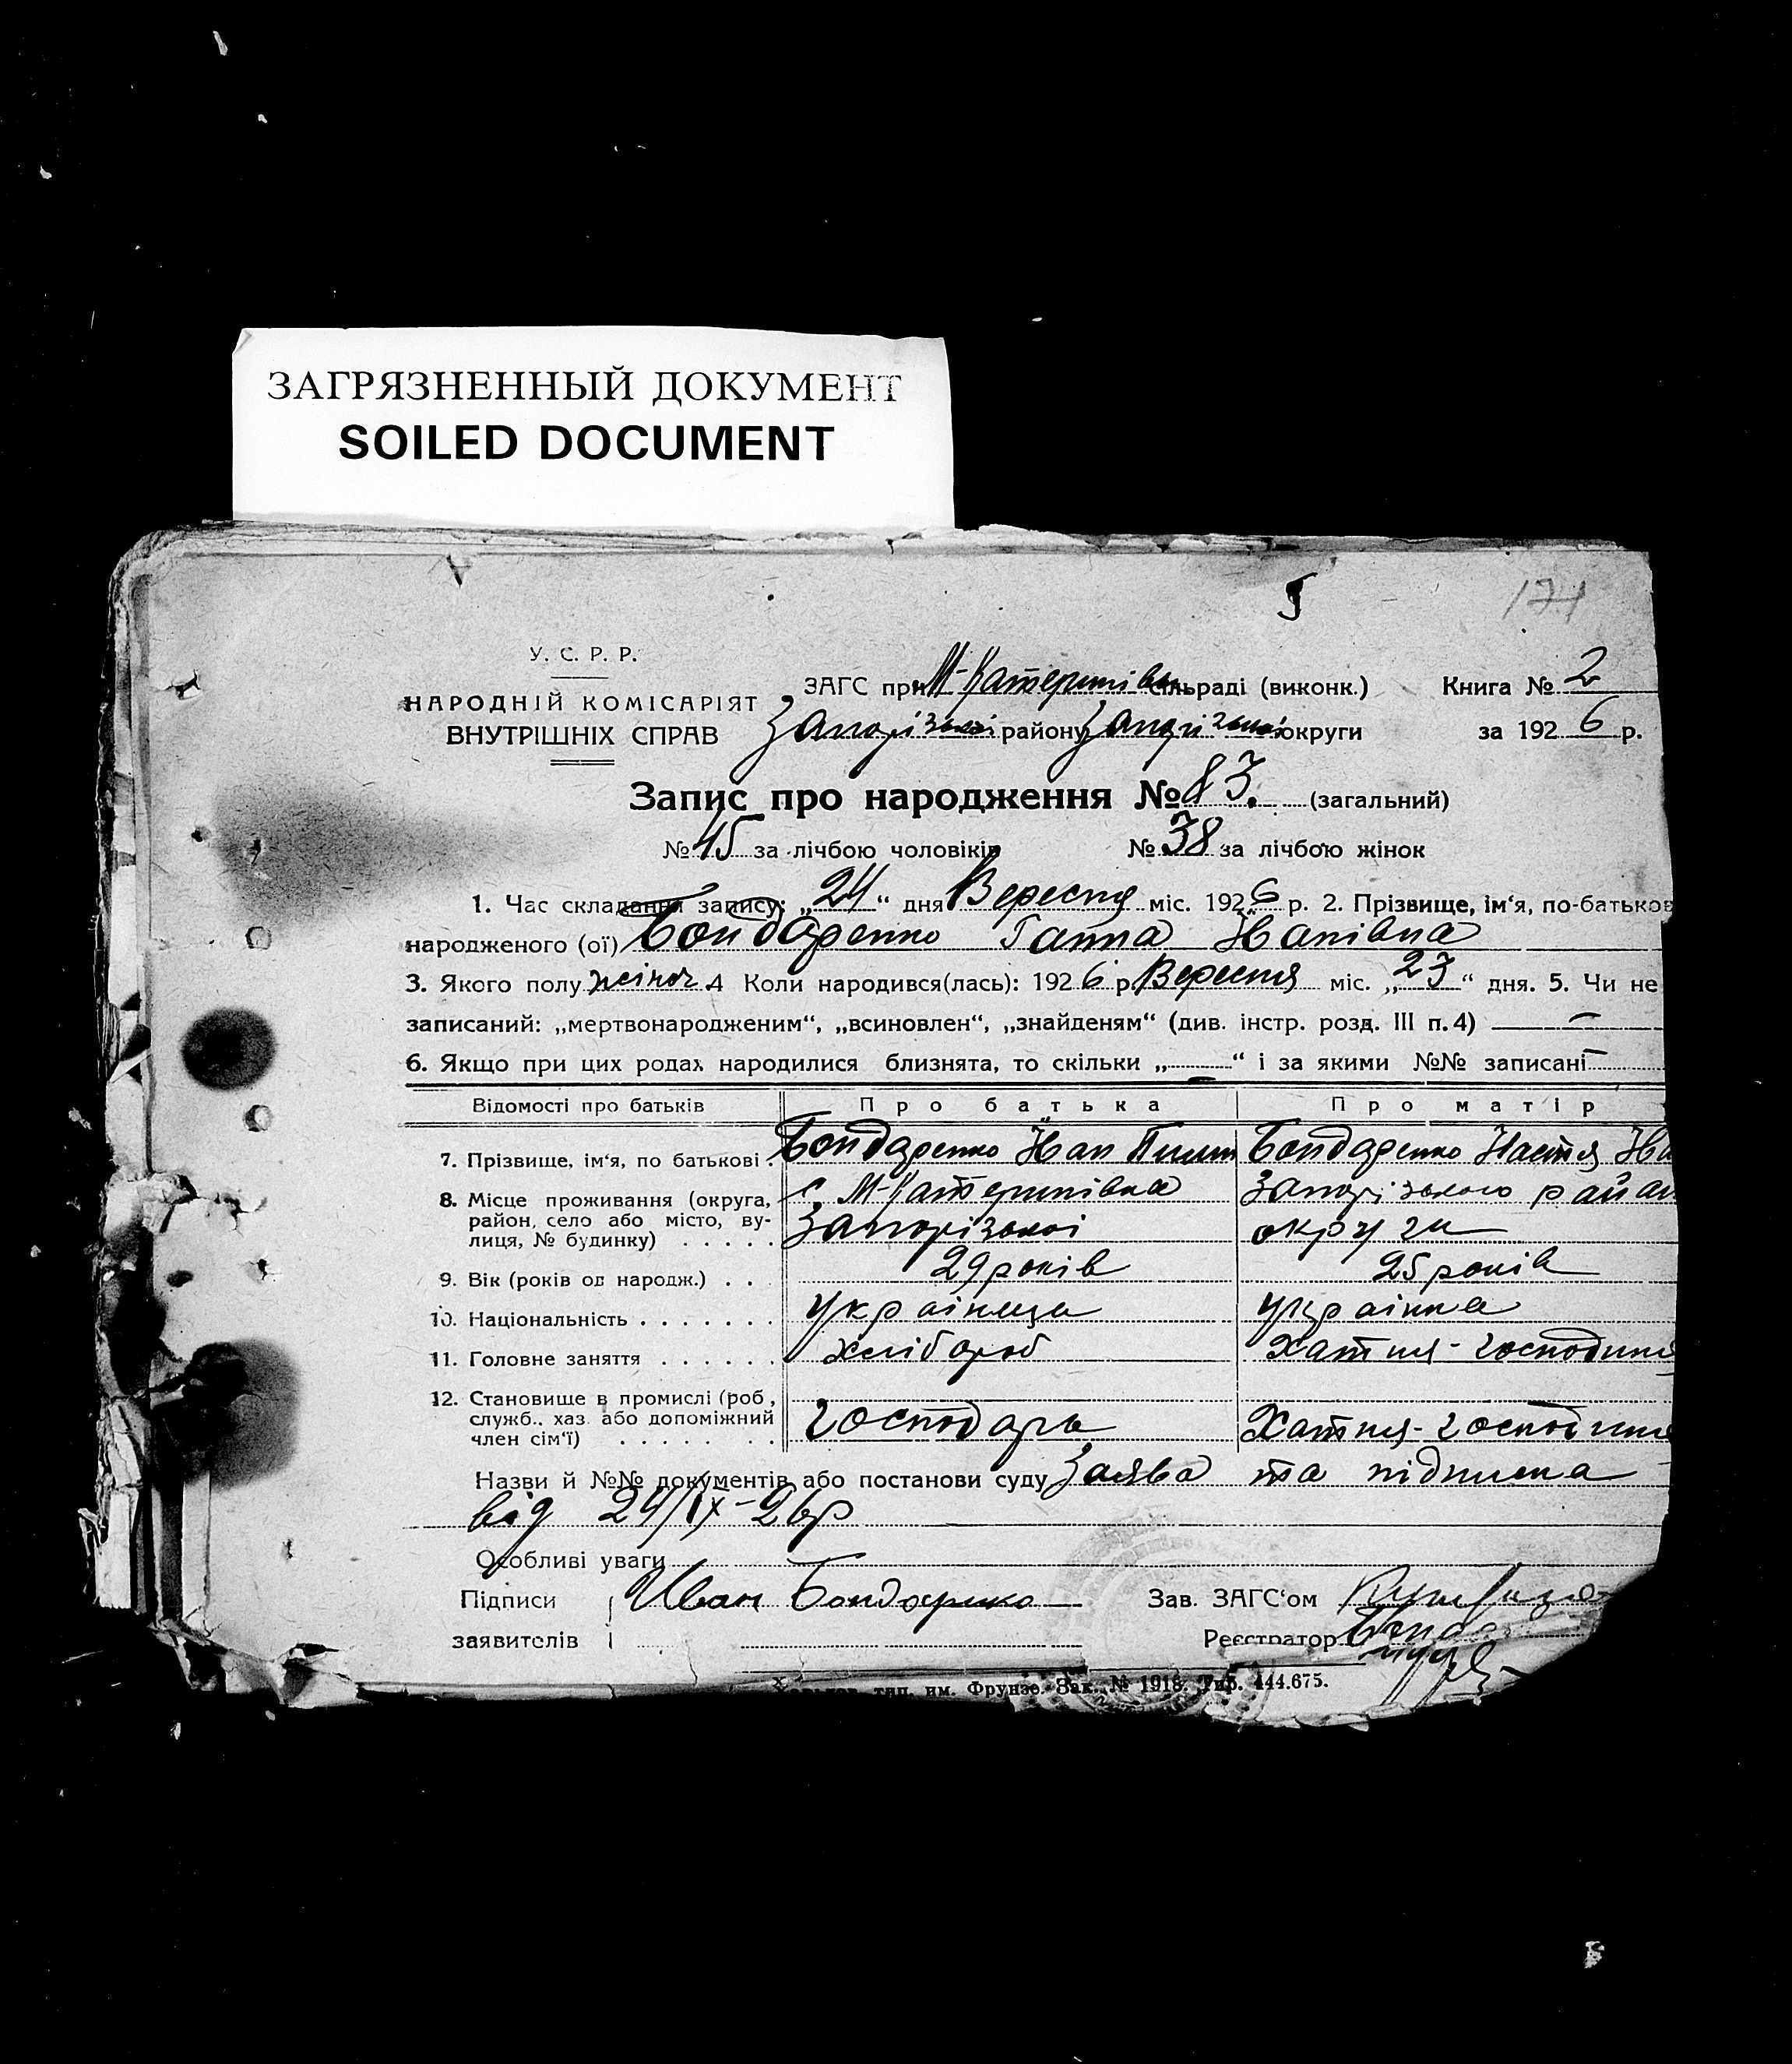 ЗАГРЯЗНЕННЫЙ ДОКУМЕНТ
SOILED DOCUMENT
174
У. С. Р. Р.
НАРОДНІЙ КОМІСАРІЯТ
ВНУТРІШНІХ СПРАВ
ЗАГС при М-Катеринівськ сільраді (виконк.) Книга № 2
Запорізької району Запорізької округи за 1926 р.
Запис про народження № 83. (загальний)
№ 45 за лічбою чоловіків № 38 за лічбою жінок
1. Час складання запису: „24“ дня Вересня міс. 1926 р. 2. Прізвище, ім‘я, по-батькові
народженого (ої) Бондаренко Ганна Іванівна
3. Якого полу жіноч. 4 Коли народився(лась): 1926 р. Вересня міс. „23“ дня. 5. Чи не
записаний: „мертвонародженим“, „всиновлен“, „знайденям“ (див. інстр. розд. III п. 4) —
6. Якщо при цих родах народилися близнята, то скільки „—“ і за якими №№ записані —
Відомості про батьків Про батька Про матір
7. Прізвище, ім‘я, по батькові . Бондаренко Іван Пилип Бондаренко Настя Іва
8. Місце проживання (округа, с. М-Катеринівка Запорізького район
район, село або місто, ву-
лиця, № будинку) . . . . . Запорізької округи
9. Вік (років од народж.) . . . 29 років 25 років
10. Національність . . . . . . . Українець Українка
11. Головне заняття . . . . . . хлібороб Хатня-господиня
12. Становище в промислі (роб.,
служб., хаз. або допоміжний
член сім‘ї) . . . . . . . Господарь Хатня-господиня
Назви й №№ документів або постанови суду Заява та підписка
від 24/IX-26р
Особливі уваги
Підписи Иван Бондаренко Зав. ЗАГС‘ом
заявителів Реєстратор
тип. им. Фрунзе. Зак. № 1918. Тир. 444.675.